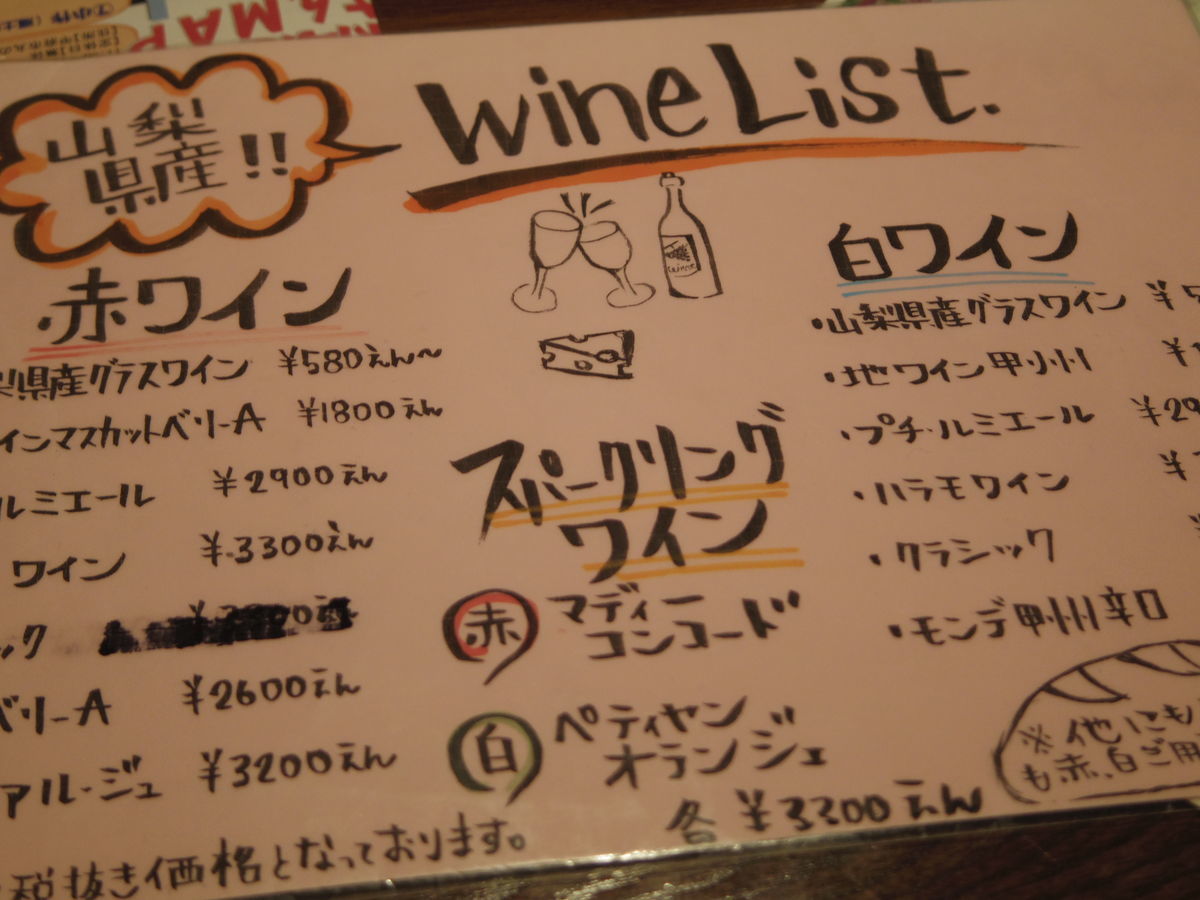 MAP
山梨
県産!!
Wine List.
赤ワイン
梨県産グラスワイン ¥580えん〜
インマスカットベリーA ¥1800えん
ルミエール ¥2900えん
ワイン ¥3300えん
ック
ベリーA ¥2600えん
アル・ジュ ¥3200えん
税抜き価格となっております。
スパークリング
ワイン
赤 マディー
コンコード
白 ペティヤン
オランジェ
各 ¥3300えん
白ワイン
・山梨県産グラスワイン ¥
・地ワイン甲州 ¥
・プチ・ルミエール ¥29
・ハラモワイン ¥
・クラシック ¥
・モンデ甲州辛口
※他にも
も赤、白ご用